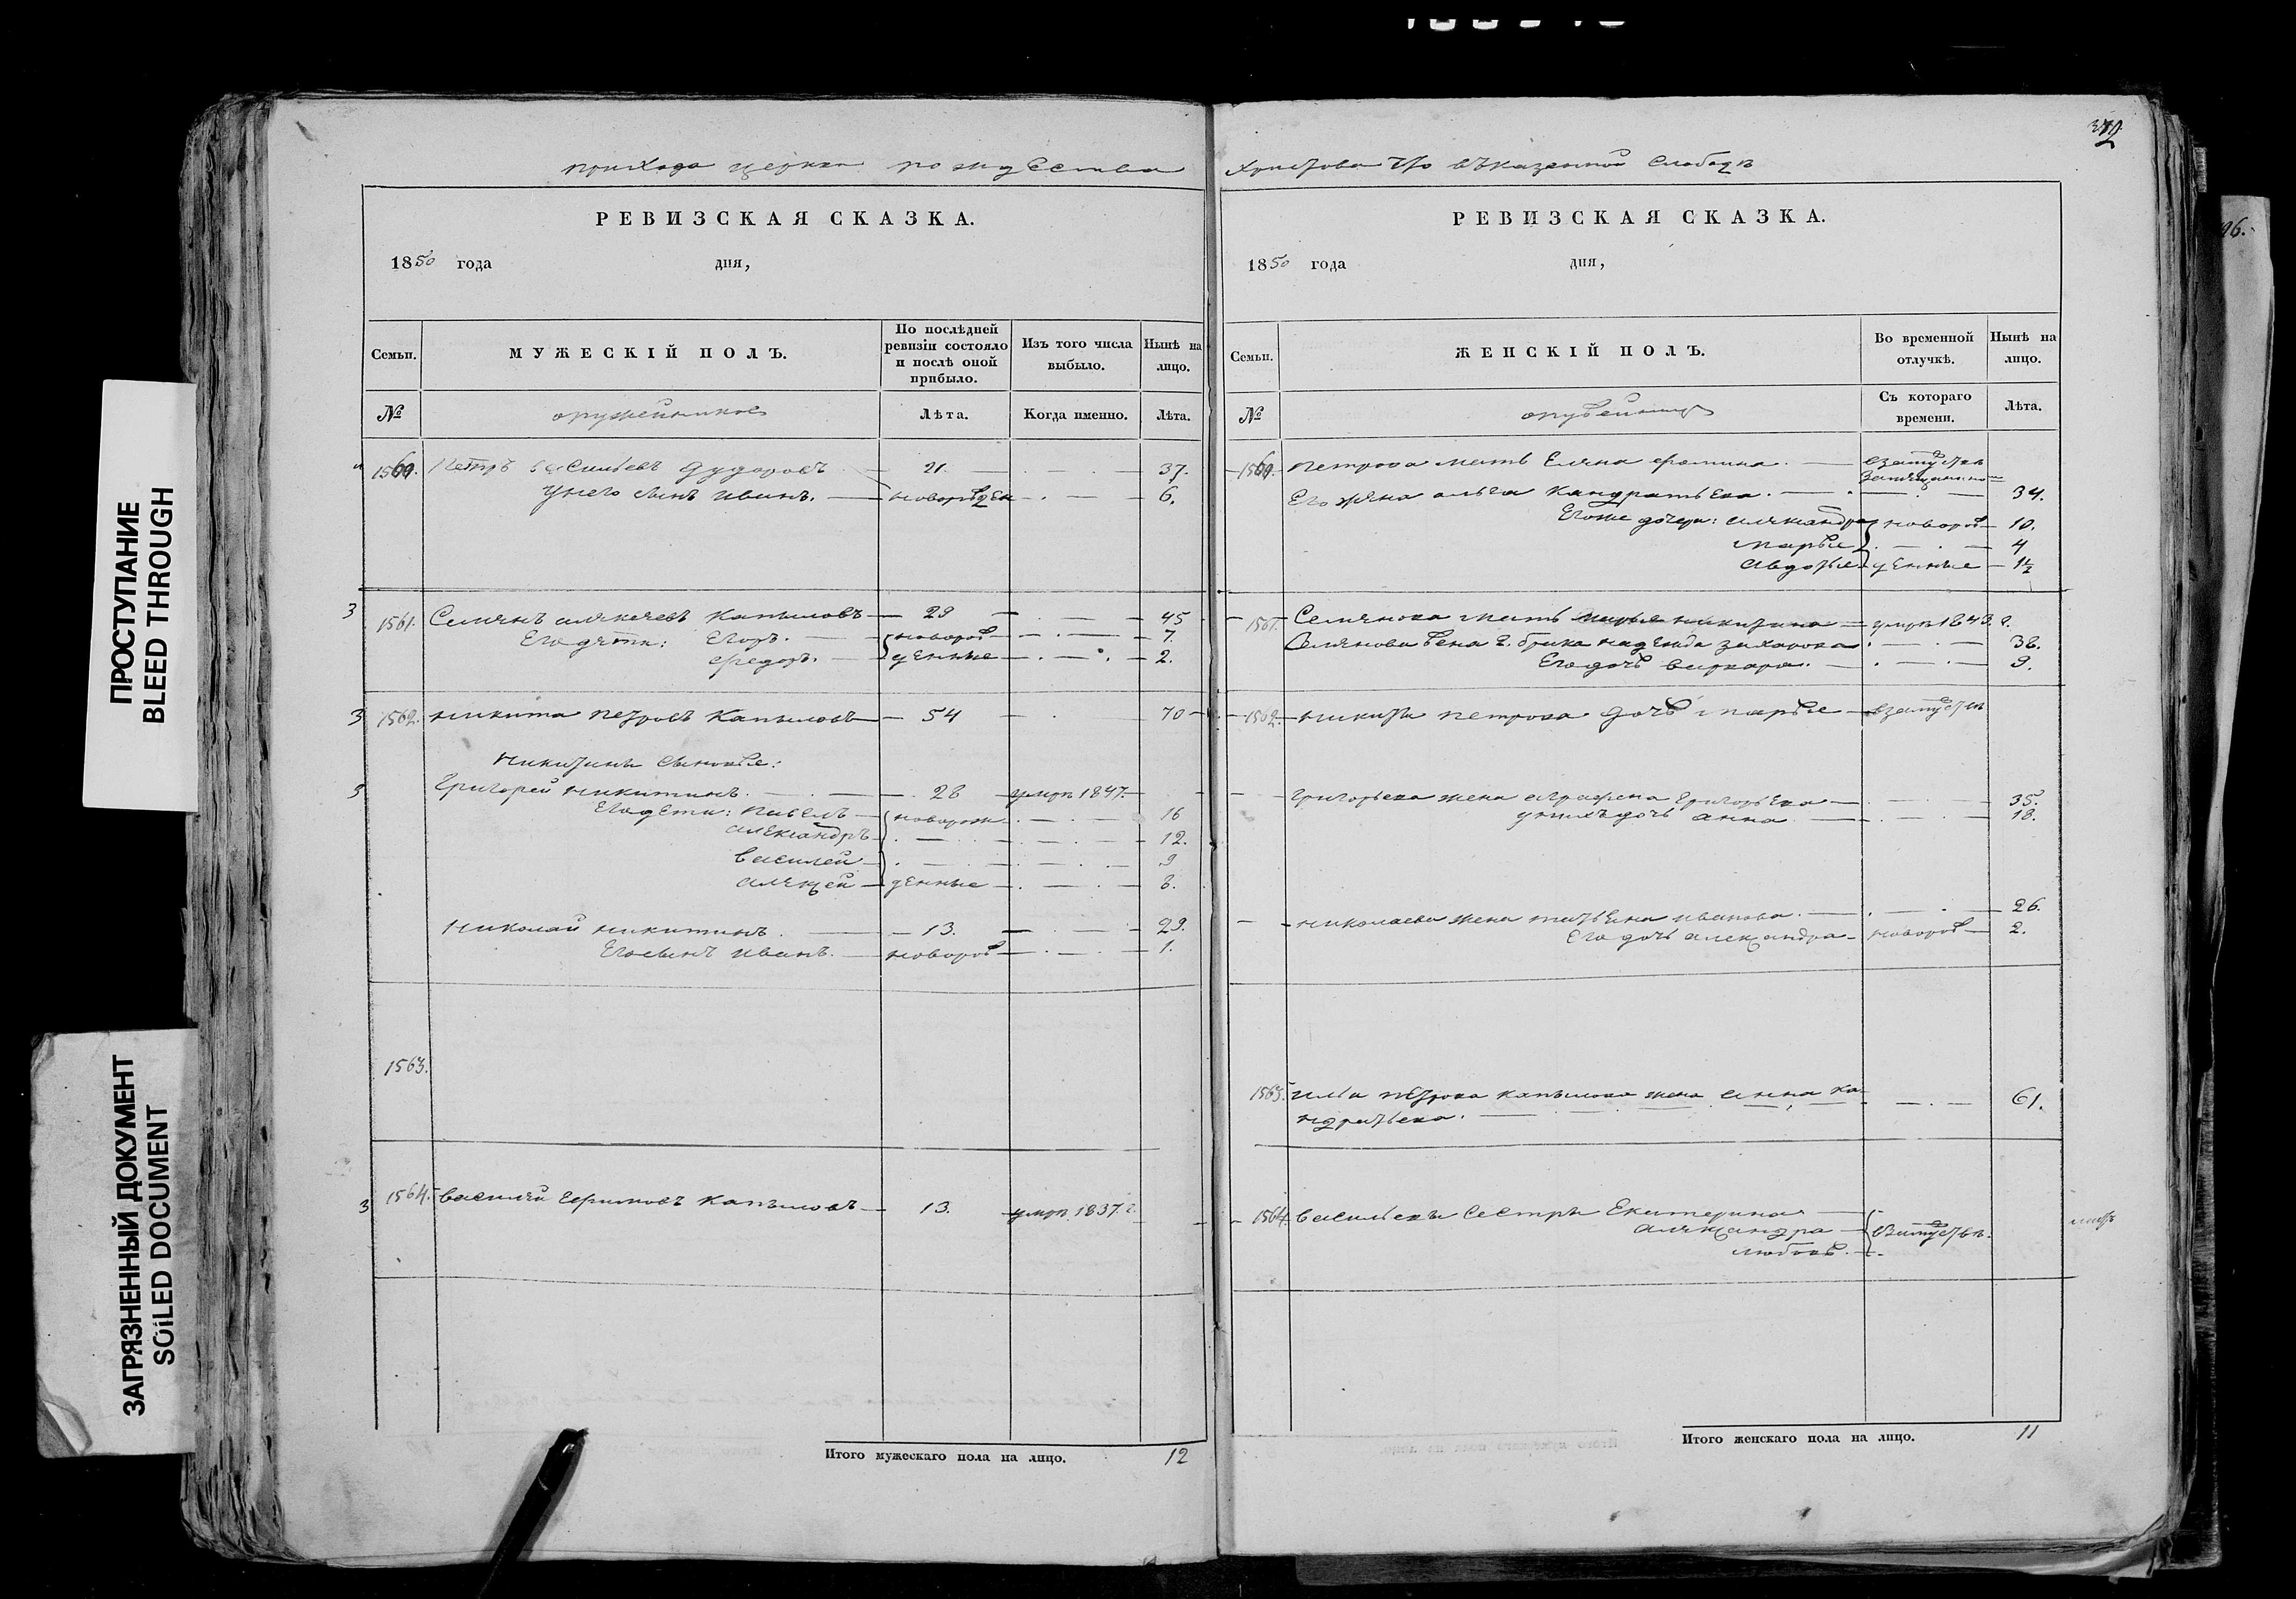 372
прихода церкви рождества
Христова что въ казенной слободѣ
РЕВИЗСКАЯ СКАЗКА.
1850 года дня,
Семьи.
МУЖЕСКІЙ ПОЛЪ.
По послѣдней ревизіи состояло и послѣ оной прибыло.
Изъ того числа выбыло.
Нынѣ на лицо.
№
оружейников
Лѣта.
Когда именно.
Лѣта.
1560. Петръ васильевъ дударовъ 21. 37.
у него сынъ иванъ. новорожден 6.
3 1561. Семянъ алякѣевъ капыловъ 29 45
Его дѣти: Егоръ. новорож 7.
федоръ. денные 2.
3 1562. никита петровъ капыловъ 54 70
никитины сыновье:
3 Григорей никитинъ. 28 умре 1847
Его дети: павелъ новорож 16
александръ 12.
василей 9
алѣксей денные 8.
николай никитинъ. 13. 29.
Его сынъ иванъ. новорож 1.
1563.
3 1564. василей ефимовъ капыловъ 13. умре 1837. г.
Итого мужескаго пола на лицо. 12
РЕВИЗСКАЯ СКАЗКА.
1850 года дня,
Семьи.
ЖЕНСКІЙ ПОЛЪ.
Во временной отлучкѣ.
Нынѣ на лицо.
№
Съ котораго времени.
Лѣта.
1560. петрова мать Еляна фомина. взамужѣ
Его жена ольга кандратьева. 34.
Его же дочери: аляксандра новорож 10.
марье 4
авдотье денные 1½
1561. Семянова мать марья никитина умре 1843. г.
Семянова жена 2. брака надежда захарова 38.
Его дочь варвара. 9.
1562. никиты петрова дочь марье взамужѣ
григорьева жена аграфена григорьева 35.
у нихъ дочь анна 18.
николаева жена татьяна иванова. 26.
Его дочь александра новорож 2.
1563. ильи петрова капылова жена анна ка
ндратьева. 61.
1564. васильевы сестры Екатерина
аляксандра взамужѣ.
любовь.
Итого женскаго пола на лицо. 11
96.
ПРОСТУПАНИЕ
BLEED THROUGH
ЗАГРЯЗНЕННЫЙ ДОКУМЕНТ
SOILED DOCUMENT